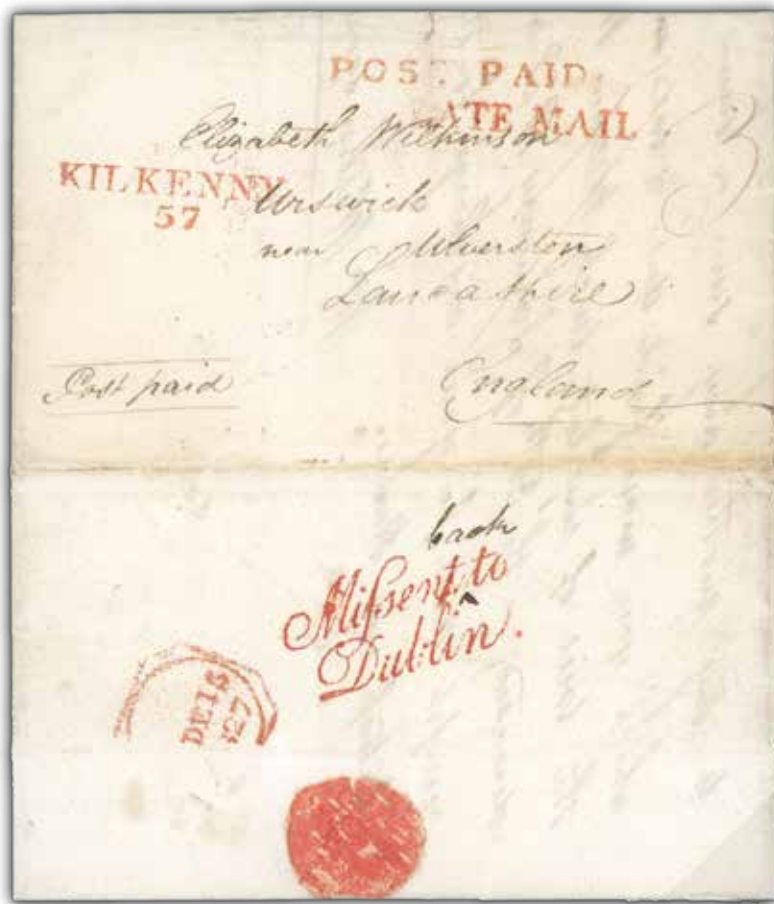 POST PAID
ATE MAIL
Elizabeth Wilkinson
KILKENNY
57
Urswick
near Ulverston
Lancashire
Post paid
England
back
Missent to
^
Dublin.
DE 15
27